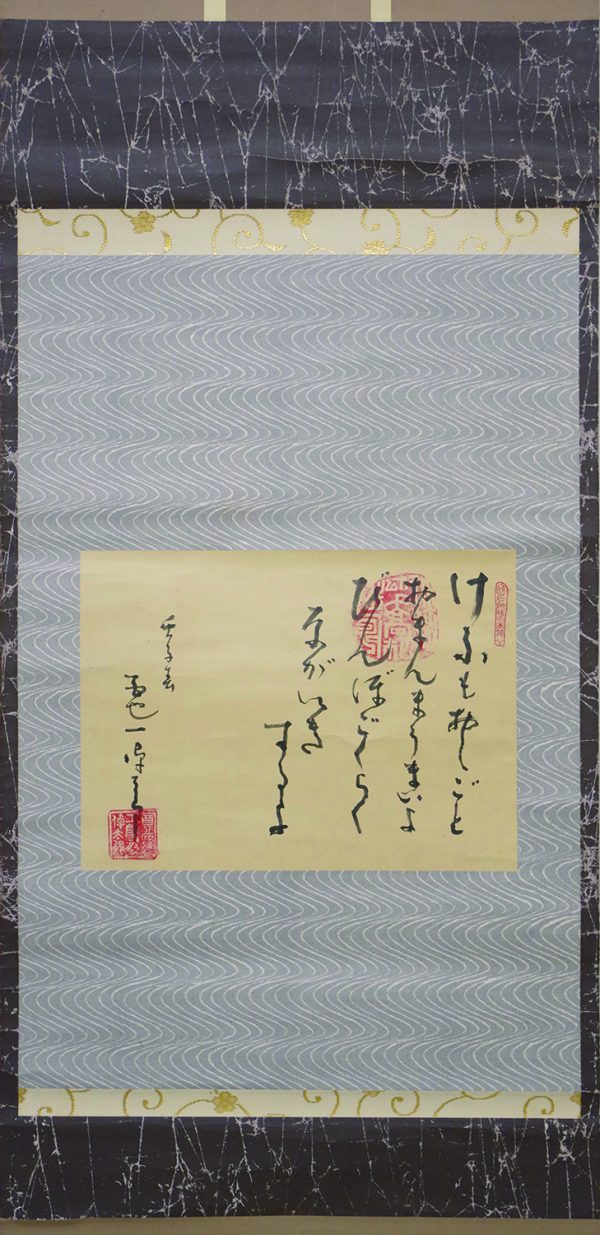 けふもおしごと
おまんまうまいよ
びんぼごくらく
ながいき
するよ
壬子春